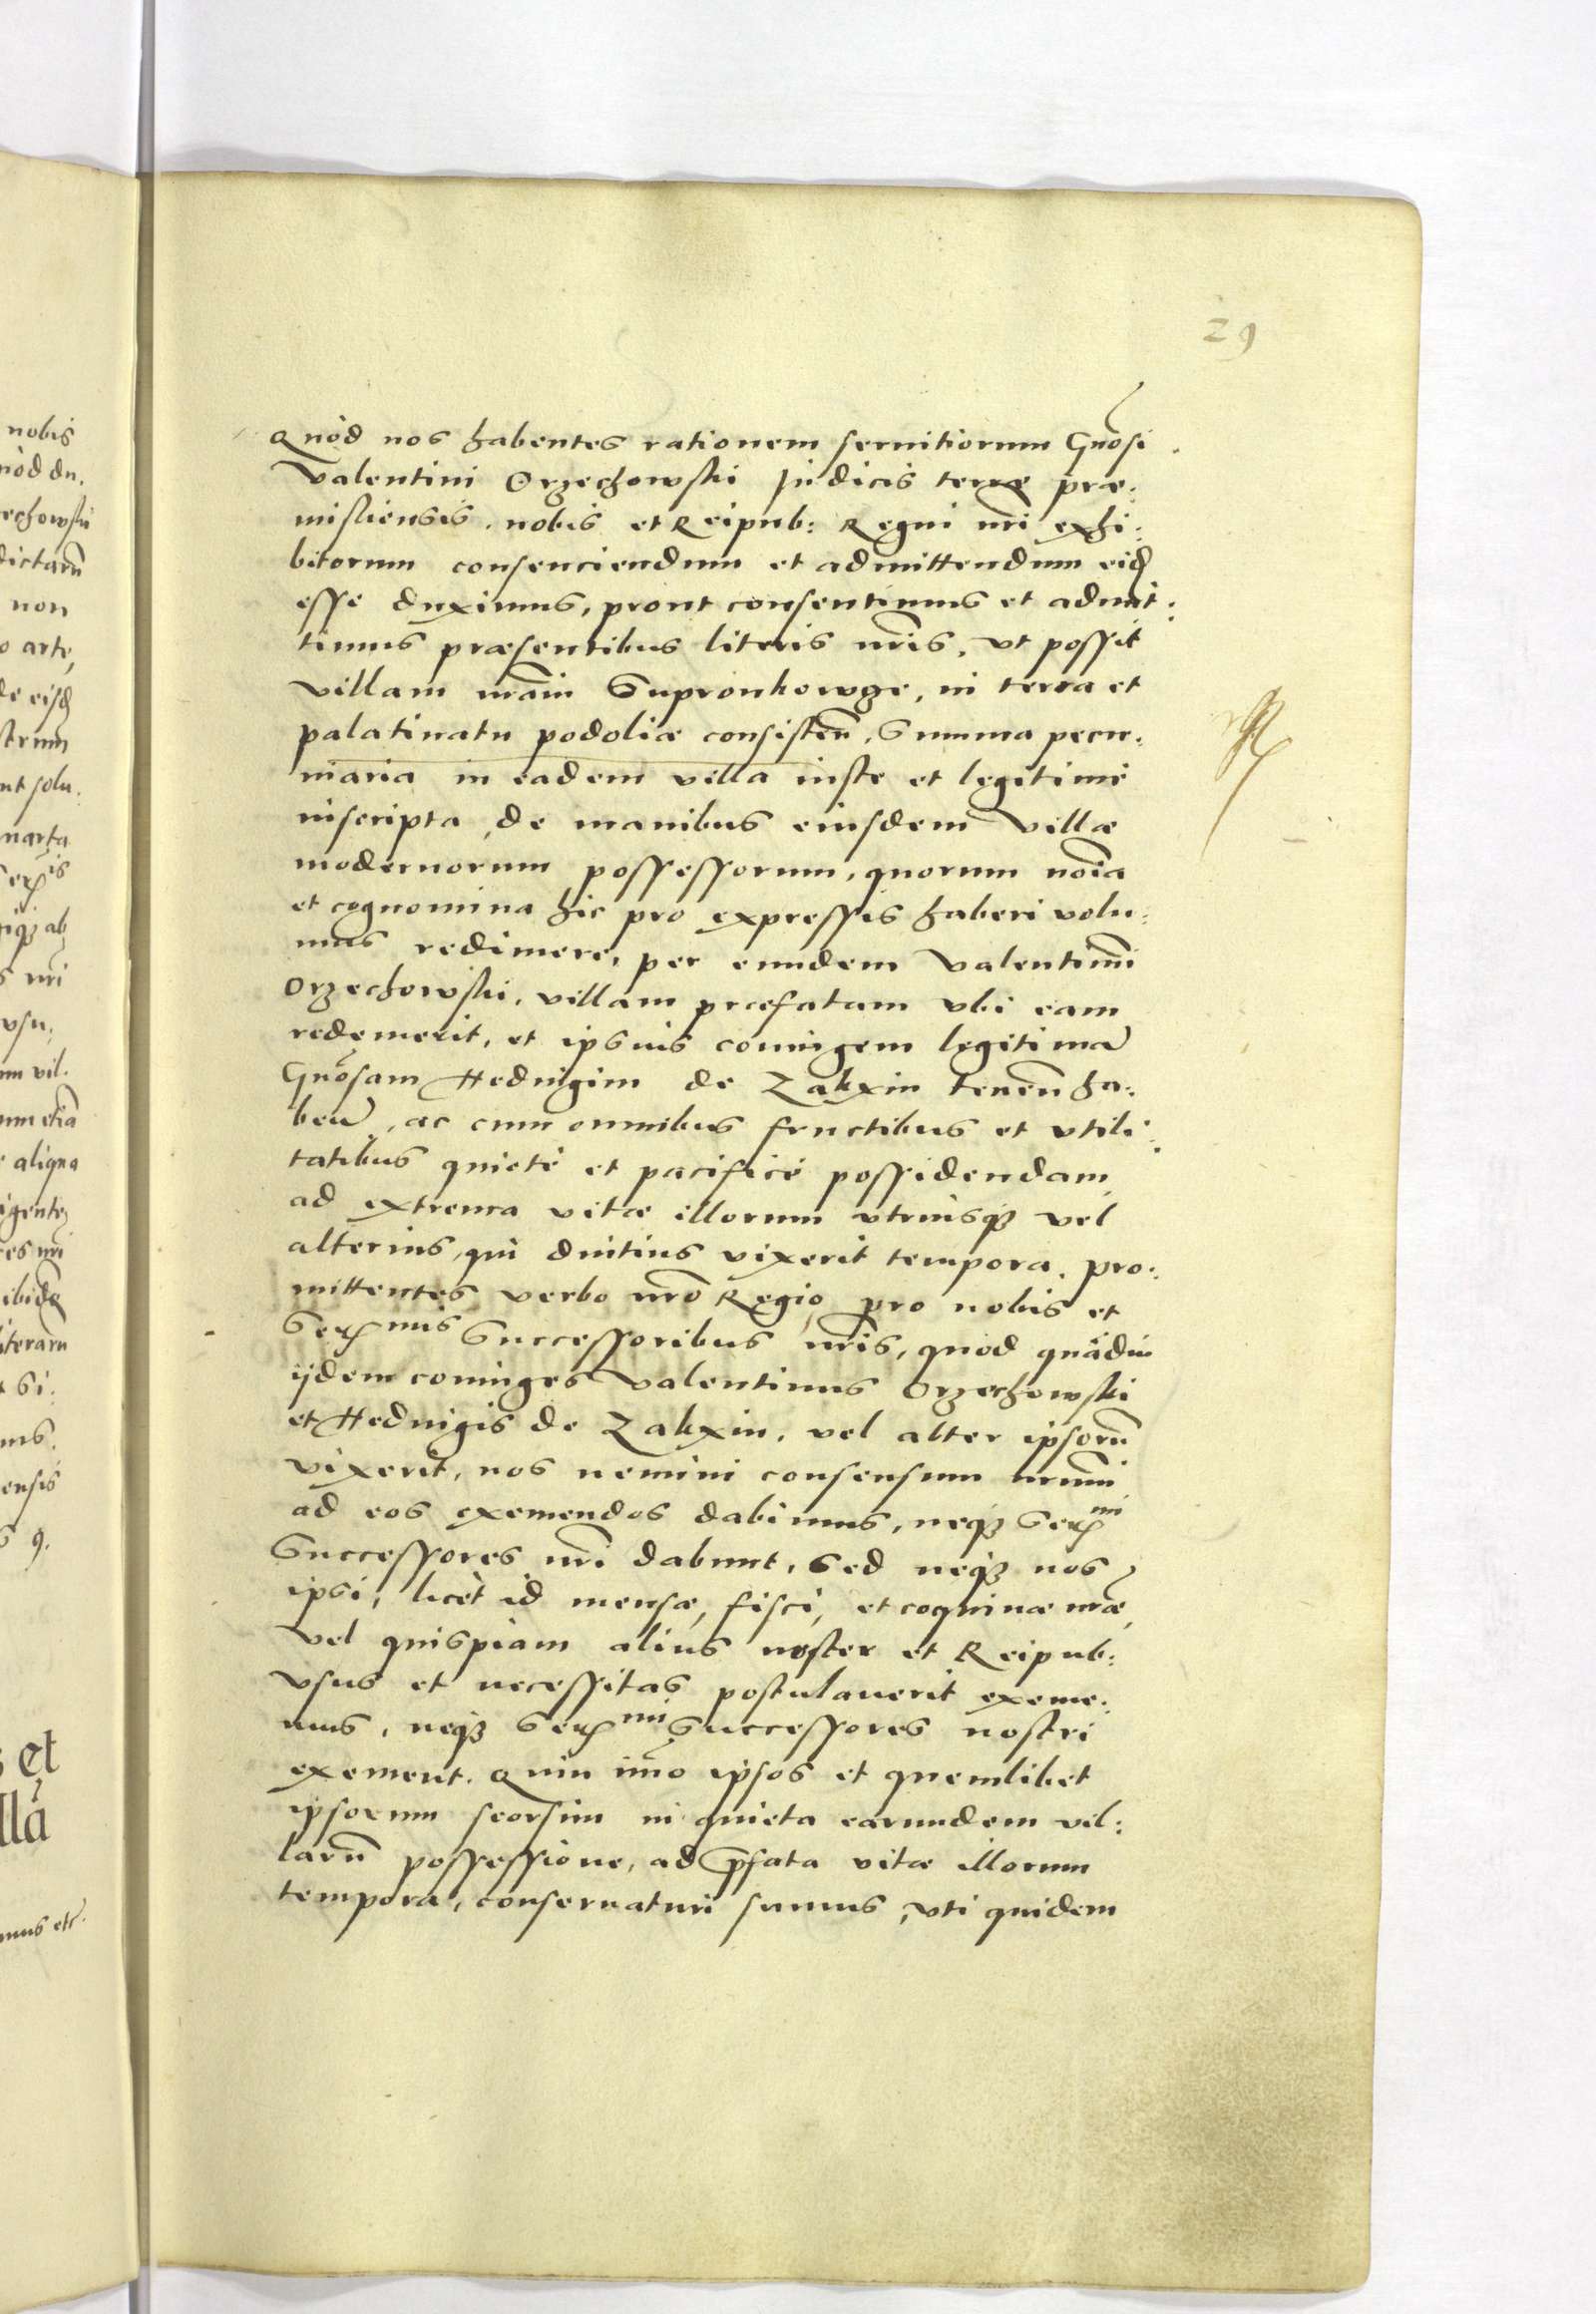 29
Quòd nos habentes rationem seruitiorum Gnosi
Valentini Orzechowski Judicis terræ præ:
misliensis, nobis et Reipub: Regni nri exhi:
bitorum consenciendum et admittendum eid
esse duximus, prout consentimus et admit:
timus præsentibus literis nris, vt possit
villam nram Supronkowge, in terra et
palatinatu podoliæ consisten, Summa pecu:
niaria in eadem villa iuste et legitimè
inscripta, de manibus eiusdem villæ
modernorum possessorum, quorum noia
et cognomina hic pro expressis haberi volu:
mus redimere, per eundem Valentinu
Orzechowski, villam præfatam vbi eam
redemerit, et ipsius coniugem legitima
Gnosam Heduigim de Zakxin tenen ha:
ben, ac cum omnibus fructibus et vtili:
tatibus quietè et pacificè possidendam
ad extrema vitæ illorum vtriusq vel
alterius, qui diutius vixerit tempora. pro:
mittentes verbo nro Regio pro nobis et
Sermis Successoribus nris, quod quàdiu
ijdem coniuges Valentinus Orzechowski
et Heduigis de Zakxin, vel alter ipsoru
vixerit, nos nemini consensum nrum
ad eos exemendos dabimus, neq Sermi
Successores nri dabunt, Sed neq nos
ipsi, licèt id mensæ, fisci, et coquinæ nræ,
vel quispiam alius noster et Reipub:
vsus et necessitas postulauerit exeme:
mus, neq Sermi Successores nostri
exement. Quin imo ipsos et quemlibet
ipsorum seorsim in quieta earundem vil:
laru possessione, ad pfata vitæ illorum
tempora, conseruaturi sumus, vti quidem